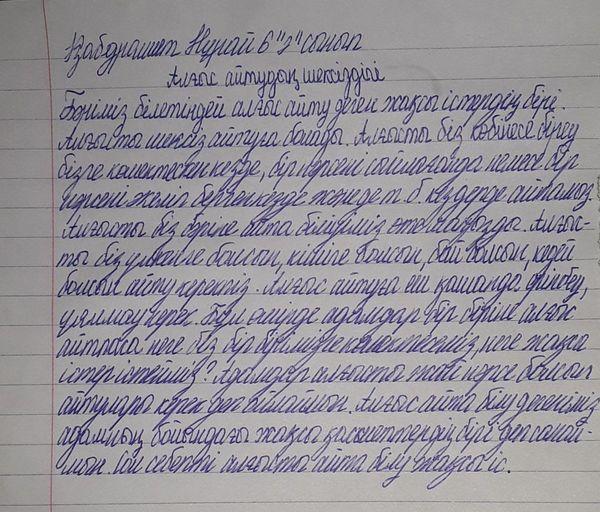 Қабдрашит Нұрай 6 "г" сынып
Алғыс айтудың шексіздігі
Бәріміз білетіндей алғыс айту деген жақсы істердің бірі.
Алғысты шексіз айтуға болады. Алғысты біз көбінесе біреу
бізге көмектескен кезде, бір нәрсені сыйлағанда немесе бір
нәрсені жеңіп берген кезде және де т. б. кездерде айтамыз.
Алғысты біз бәріне айта білуіміз өте маңызды. Алғыс-
ты біз үлкенге болсын, кішіге болсын, бай болсын, кедей
болсын айту керекпіз. Алғыс айтуға еш қашанда ерінбеу,
ұялмау керек. Бұл өмірде адамдар бір біріне алғыс
айтпаса неге біз бір бірімізге көмектесеміз, неге жақсы
істер істейміз? Адамдар алғысты және нәрсе болсын
айтулары керек деп ойлаймын. Алғыс айта білу дегеніміз
адамның бойындағы жақсы қасиеттердің бірі деп санай-
мын. Сол себепті алғысты айта білу жақсы іс.